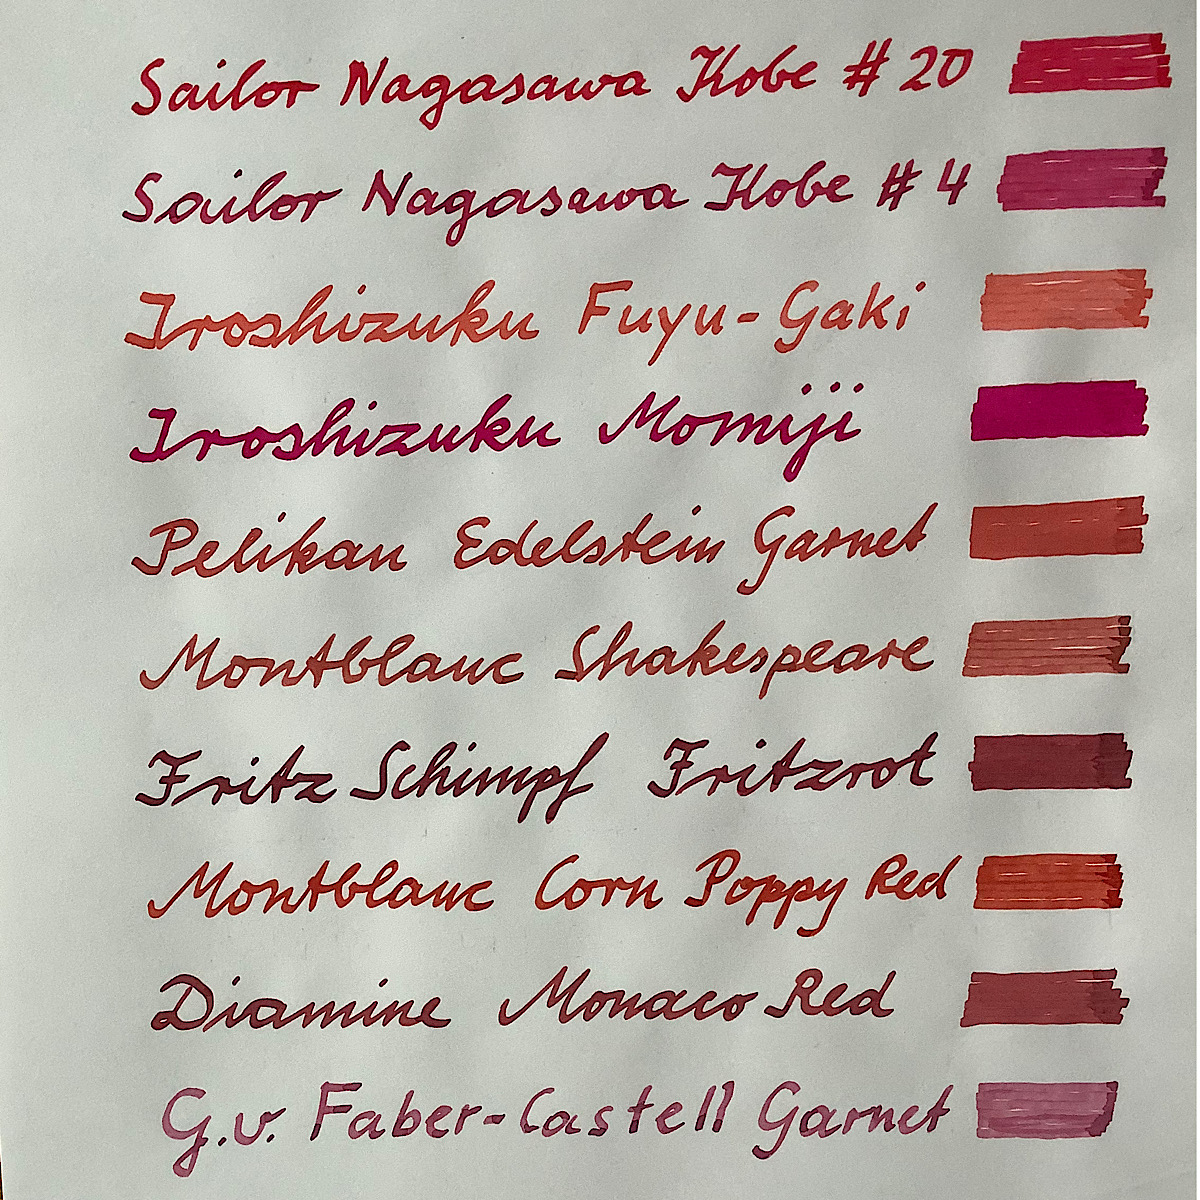 Sailor Nagasawa Kobe # 20
Sailor Nagasawa Kobe # 4
Iroshizuku Fuyu-Gaki
Iroshizuku Momiji
Pelikan Edelstein Garnet
Montblanc Shakespeare
Fritz Schimpf Fritzrot
Montblanc Corn Poppy Red
Diamine Monaco Red
G.v. Faber-Castell Garnet